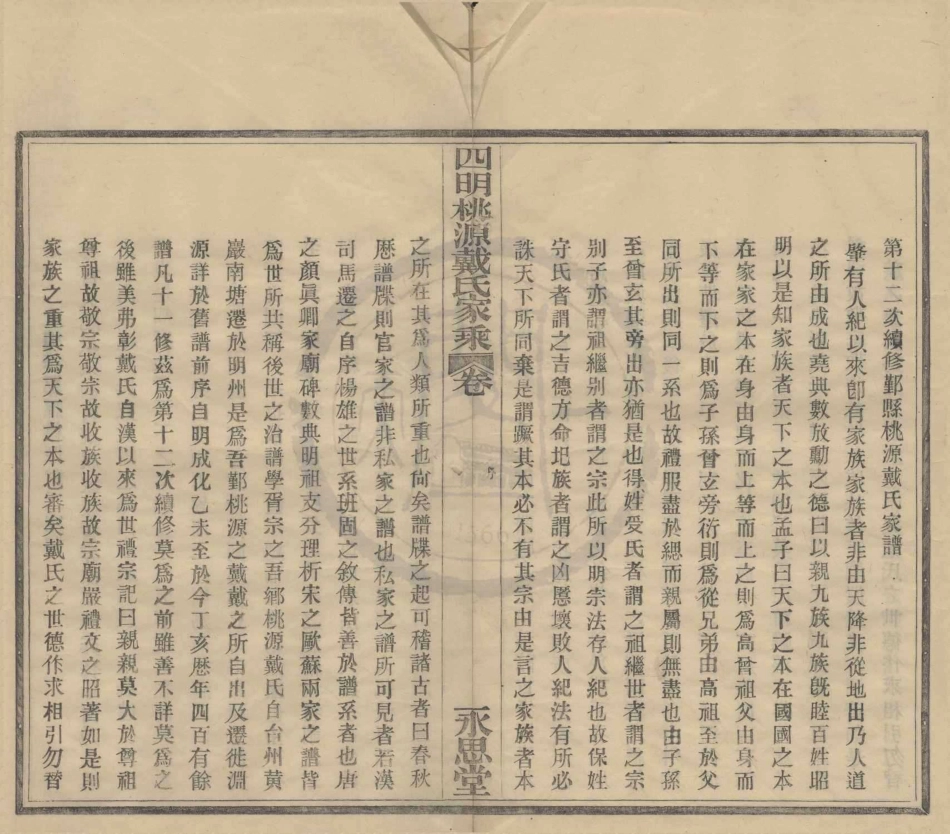 第十二次續修鄞縣桃源戴氏家譜
肇有人紀以來卽有家族家族者非由天降非從地出乃人道
之所由成也堯典數放勳之德曰以親九族九族旣睦百姓昭
明以是知家族者天下之本也孟子曰天下之本在國國之本
在家家之本在身由身而上等而上之則爲高曾祖父由身而
下等而下之則爲子孫曾玄旁衍則爲從兄弟由高祖至於父
同所出則同一系也故禮服盡於緦而親屬則無盡也由子孫
至曾玄其旁出亦猶是也得姓受氏者謂之祖繼世者謂之宗
別子亦謂祖繼別者謂之宗此所以明宗法存人紀也故保姓
守氏者謂之吉德方命圯族者謂之凶慝壞敗人紀法有所必
誅天下所同棄是謂蹶其本必不有其宗由是言之家族者本
四明桃源戴氏家乘 卷
永思堂
之所在其爲人類所重也尙矣譜牒之起可稽諸古者曰春秋
厯譜牒則官家之譜非私家之譜也私家之譜所可見者若漢
司馬遷之自序楊雄之世系班固之敘傳皆善於譜系者也唐
之顏眞卿家廟碑數典明祖支分理析宋之歐蘇兩家之譜皆
爲世所共稱後世之治譜學胥宗之吾鄉桃源戴氏自台州黃
巖南塘遷於明州是爲吾鄞桃源之戴戴之所自出及遷徙淵
源詳於舊譜前序自明成化乙未至於今丁亥歷年四百有餘
譜凡十一修茲爲第十二次續修莫爲之前雖善不詳莫爲之
後雖美弗彰戴氏自漢以來爲世禮宗記曰親親莫大於尊祖
尊祖故敬宗敬宗故收族收族故宗廟嚴禮文之昭著如是則
家族之重其爲天下之本也審矣戴氏之世德作求相引勿替